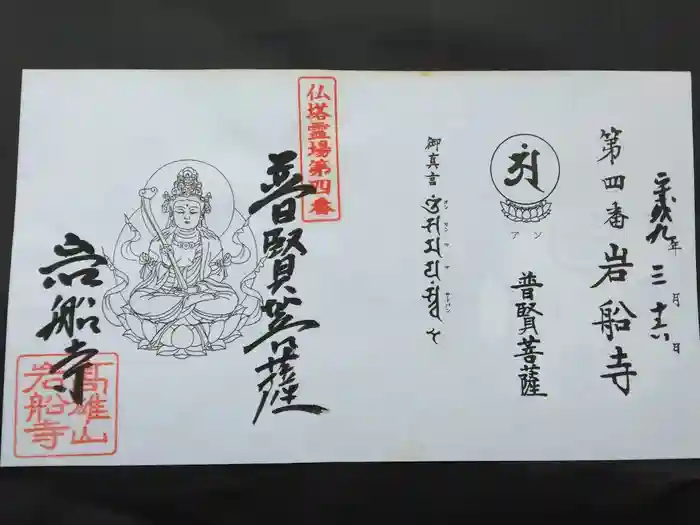 年 三月十六日
第四番 岩船寺
アン
普賢菩薩
御真言
仏塔霊場第四番
普賢菩薩
岩船寺
高雄山
岩船寺